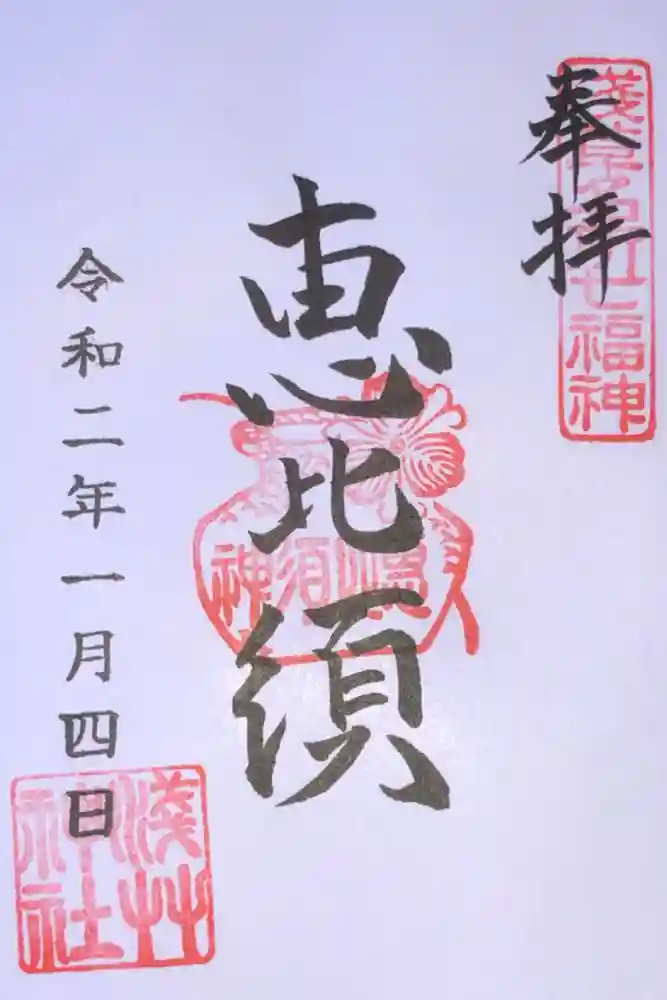 奉拝
浅草名所七福神
恵比須
恵比須神
令和二年一月四日
浅草神社